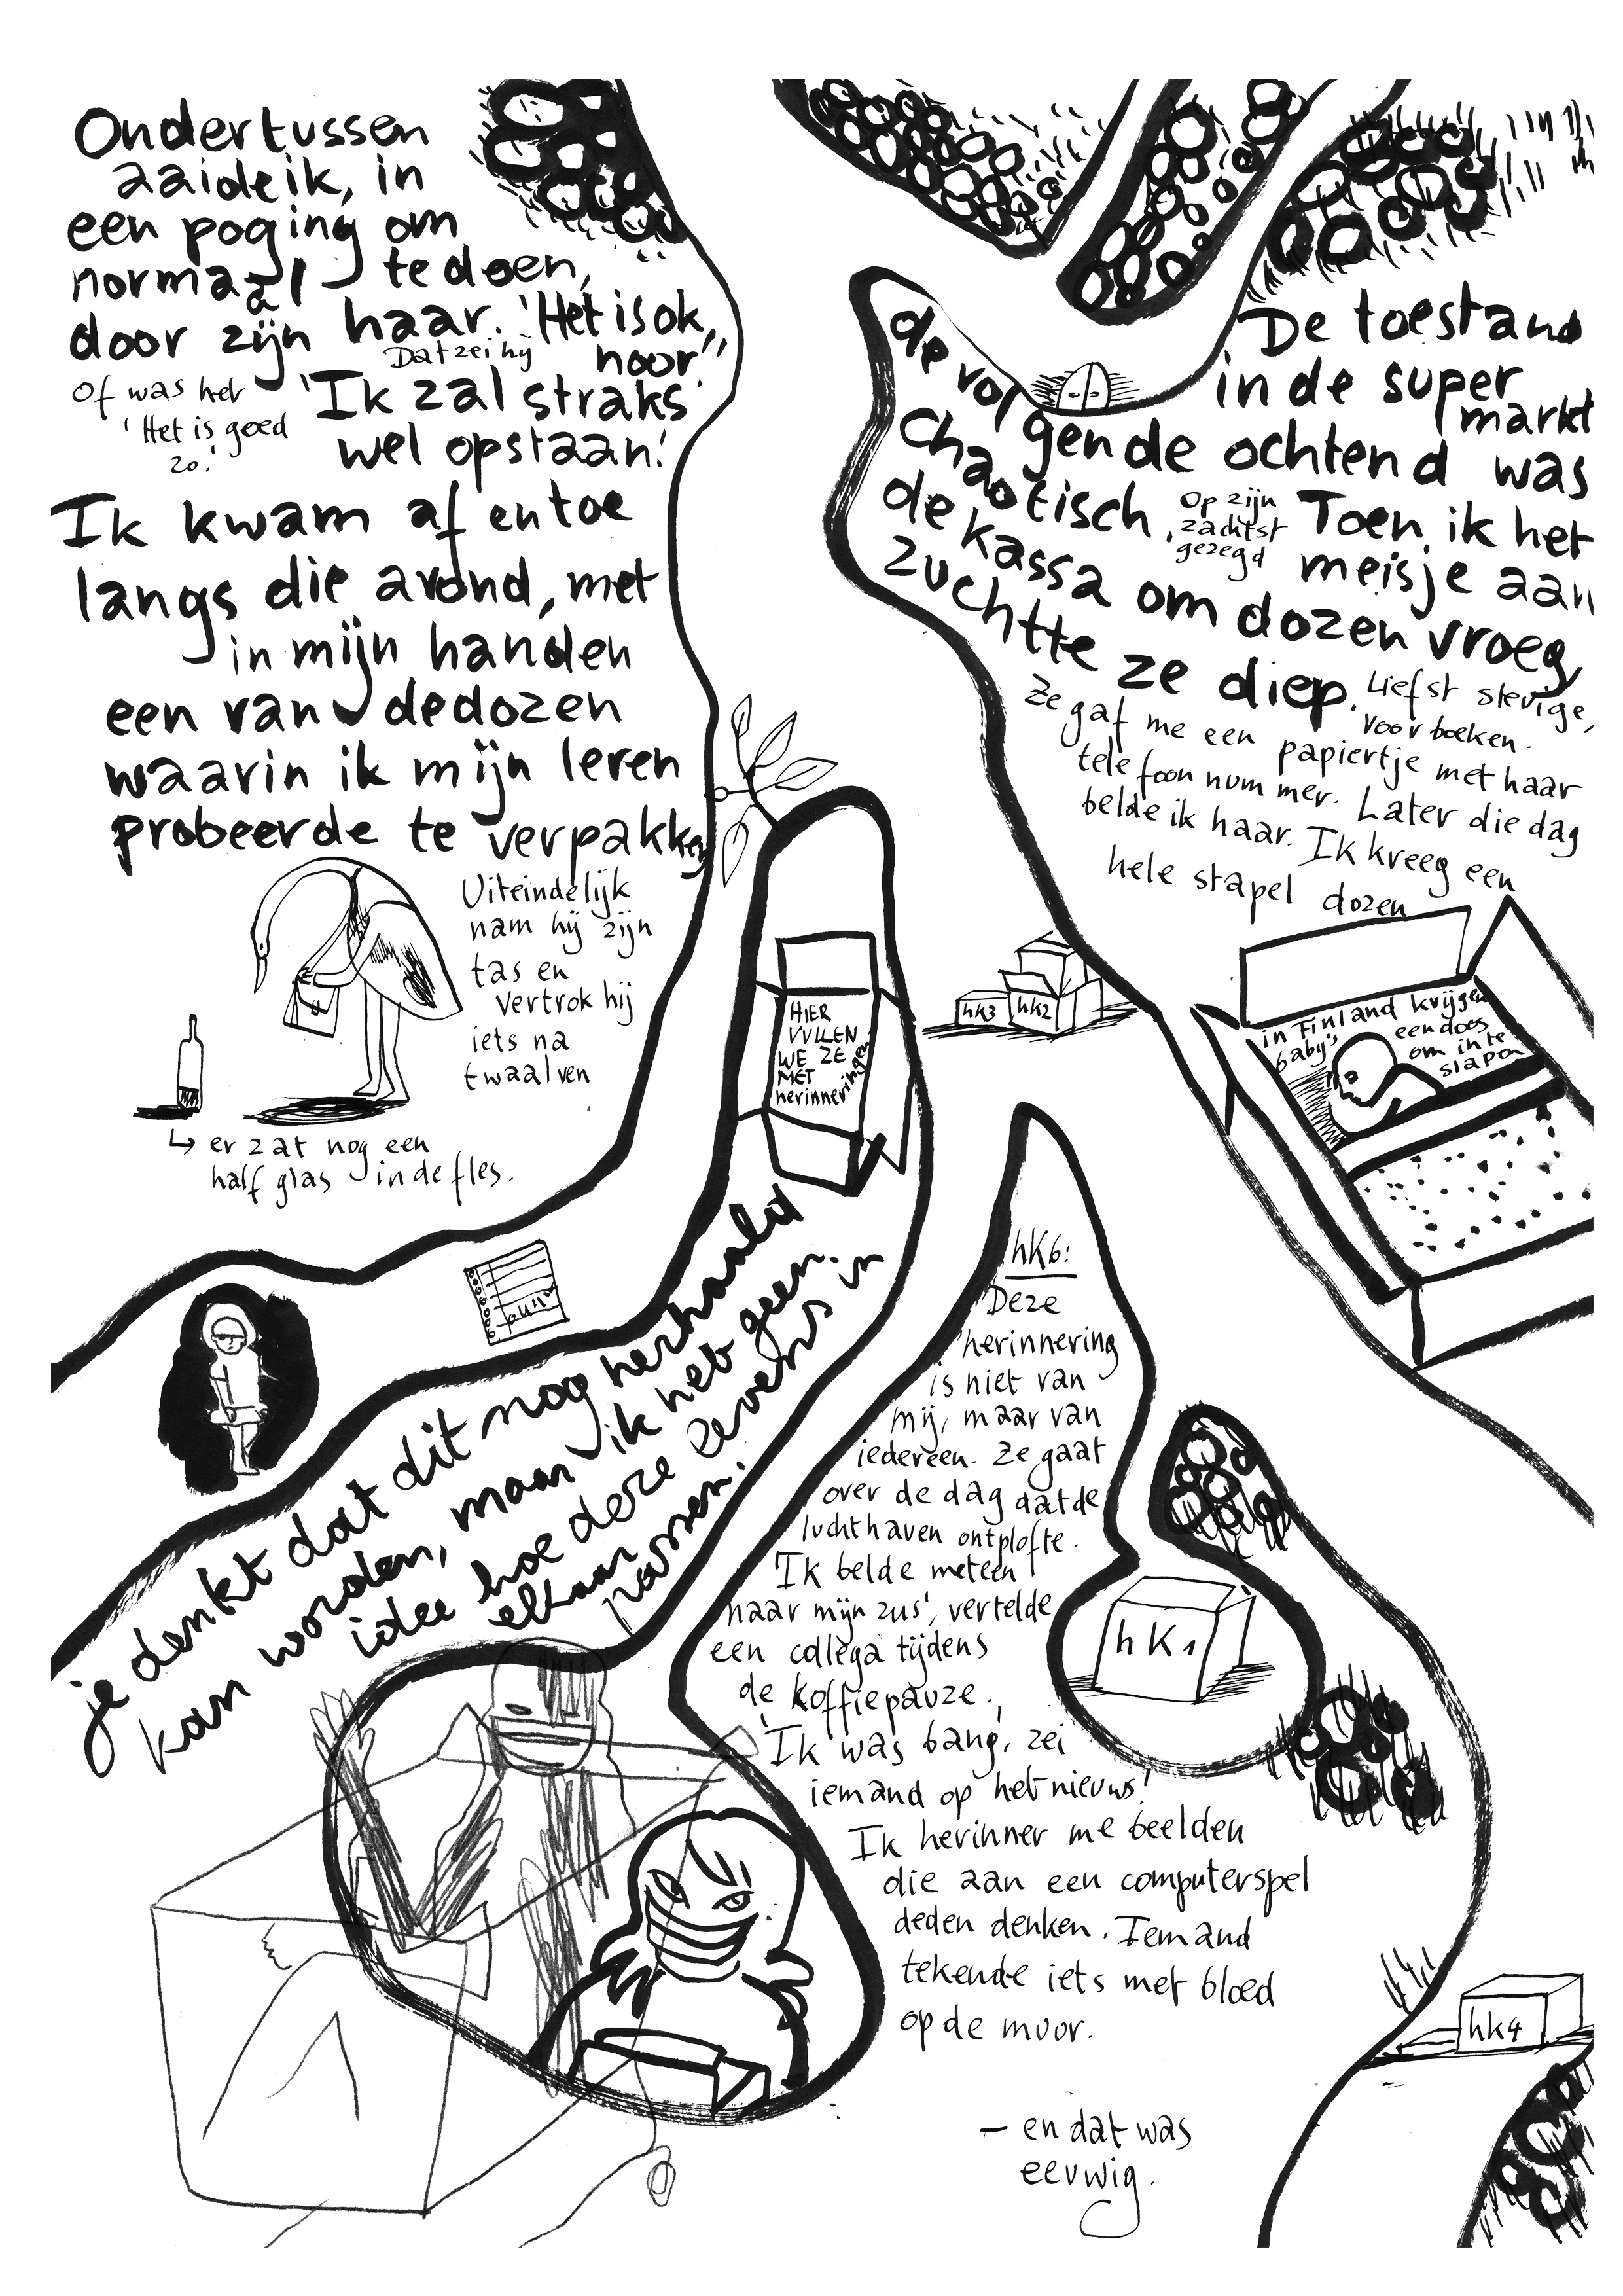 Ondertussen
aaide ik, in
een poging om
normaal te doen,
door zijn haar. 'Het is ok,
Dat zei hij
hoor''
of was het
'Het is goed
zo.'
'Ik zal straks
wel opstaan.'
Ik kwam af en toe
langs die avond, met
in mijn handen
een van de dozen
waarin ik mijn leven
probeerde te verpakken
Uiteindelijk
nam hij zijn
tas en
vertrok hij
iets na
twaalven
↳ er zat nog een
half glas in de fles.
De toestand
in de super
markt
de volgende ochtend was
chaotisch,
op zijn
zachtst
gezegd
Toen ik het
meisje aan
de kassa om dozen vroeg,
zuchtte ze diep.
Liefst stevige,
voor boeken.
Ze gaf me een papiertje met haar
telefoonnummer. Later die dag
belde ik haar. Ik kreeg een
hele stapel dozen
in Finland krijgen
baby's
een doos
om in te
slapen
hk3
hk2
HIER
VULLEN
WE ZE
MET
herinneringen.
je denkt dat dit nog herhaald
kan worden, maar ik heb geen
idee hoe deze levens in
elkaar
passen.
hk6:
Deze
herinnering
is niet van
mij, maar van
iedereen. Ze gaat
over de dag dat de
luchthaven ontplofte.
'Ik belde meteen
naar mijn zus', vertelde
een collega tijdens
de koffiepauze.
'Ik was bang', zei
iemand op het nieuws.'
Ik herinner me beelden
die aan een computerspel
deden denken. Iemand
tekende iets met bloed
op de muur.
– en dat was
eeuwig.
hk1
hk4